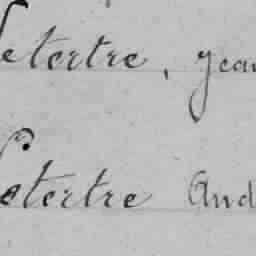 Letertre, Jean
Letertre And